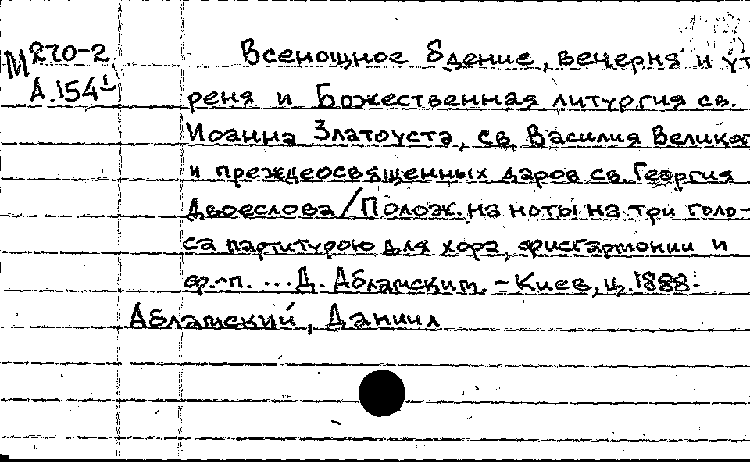 М 270-2
А.154¹
Всенощное бдение, вечерня и ут
реня и Божественная литургия св.
Иоанна Златоуста, св. Василия Великог
и преждеосвященных даров св. Георгия
Двоеслова/Полож. на ноты на три голо-
са партитурою для хора, фисгармонии и
ф.-п. ... Д. Абламским. - Киев, ц. 1888.
Абламский, Даниил